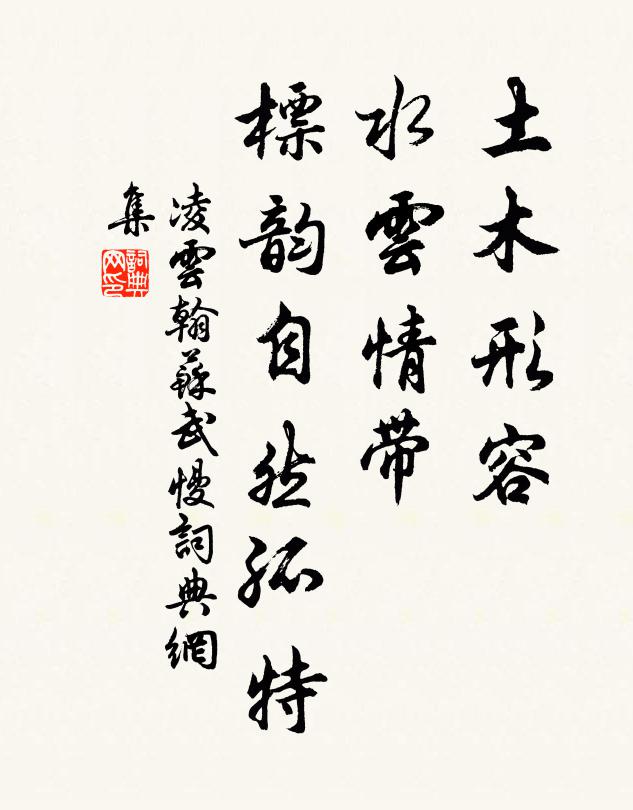 土木形容
水雲情帶
標韵自然孤特
凌雲翰蘇武慢詞典網
集
詞典
网印